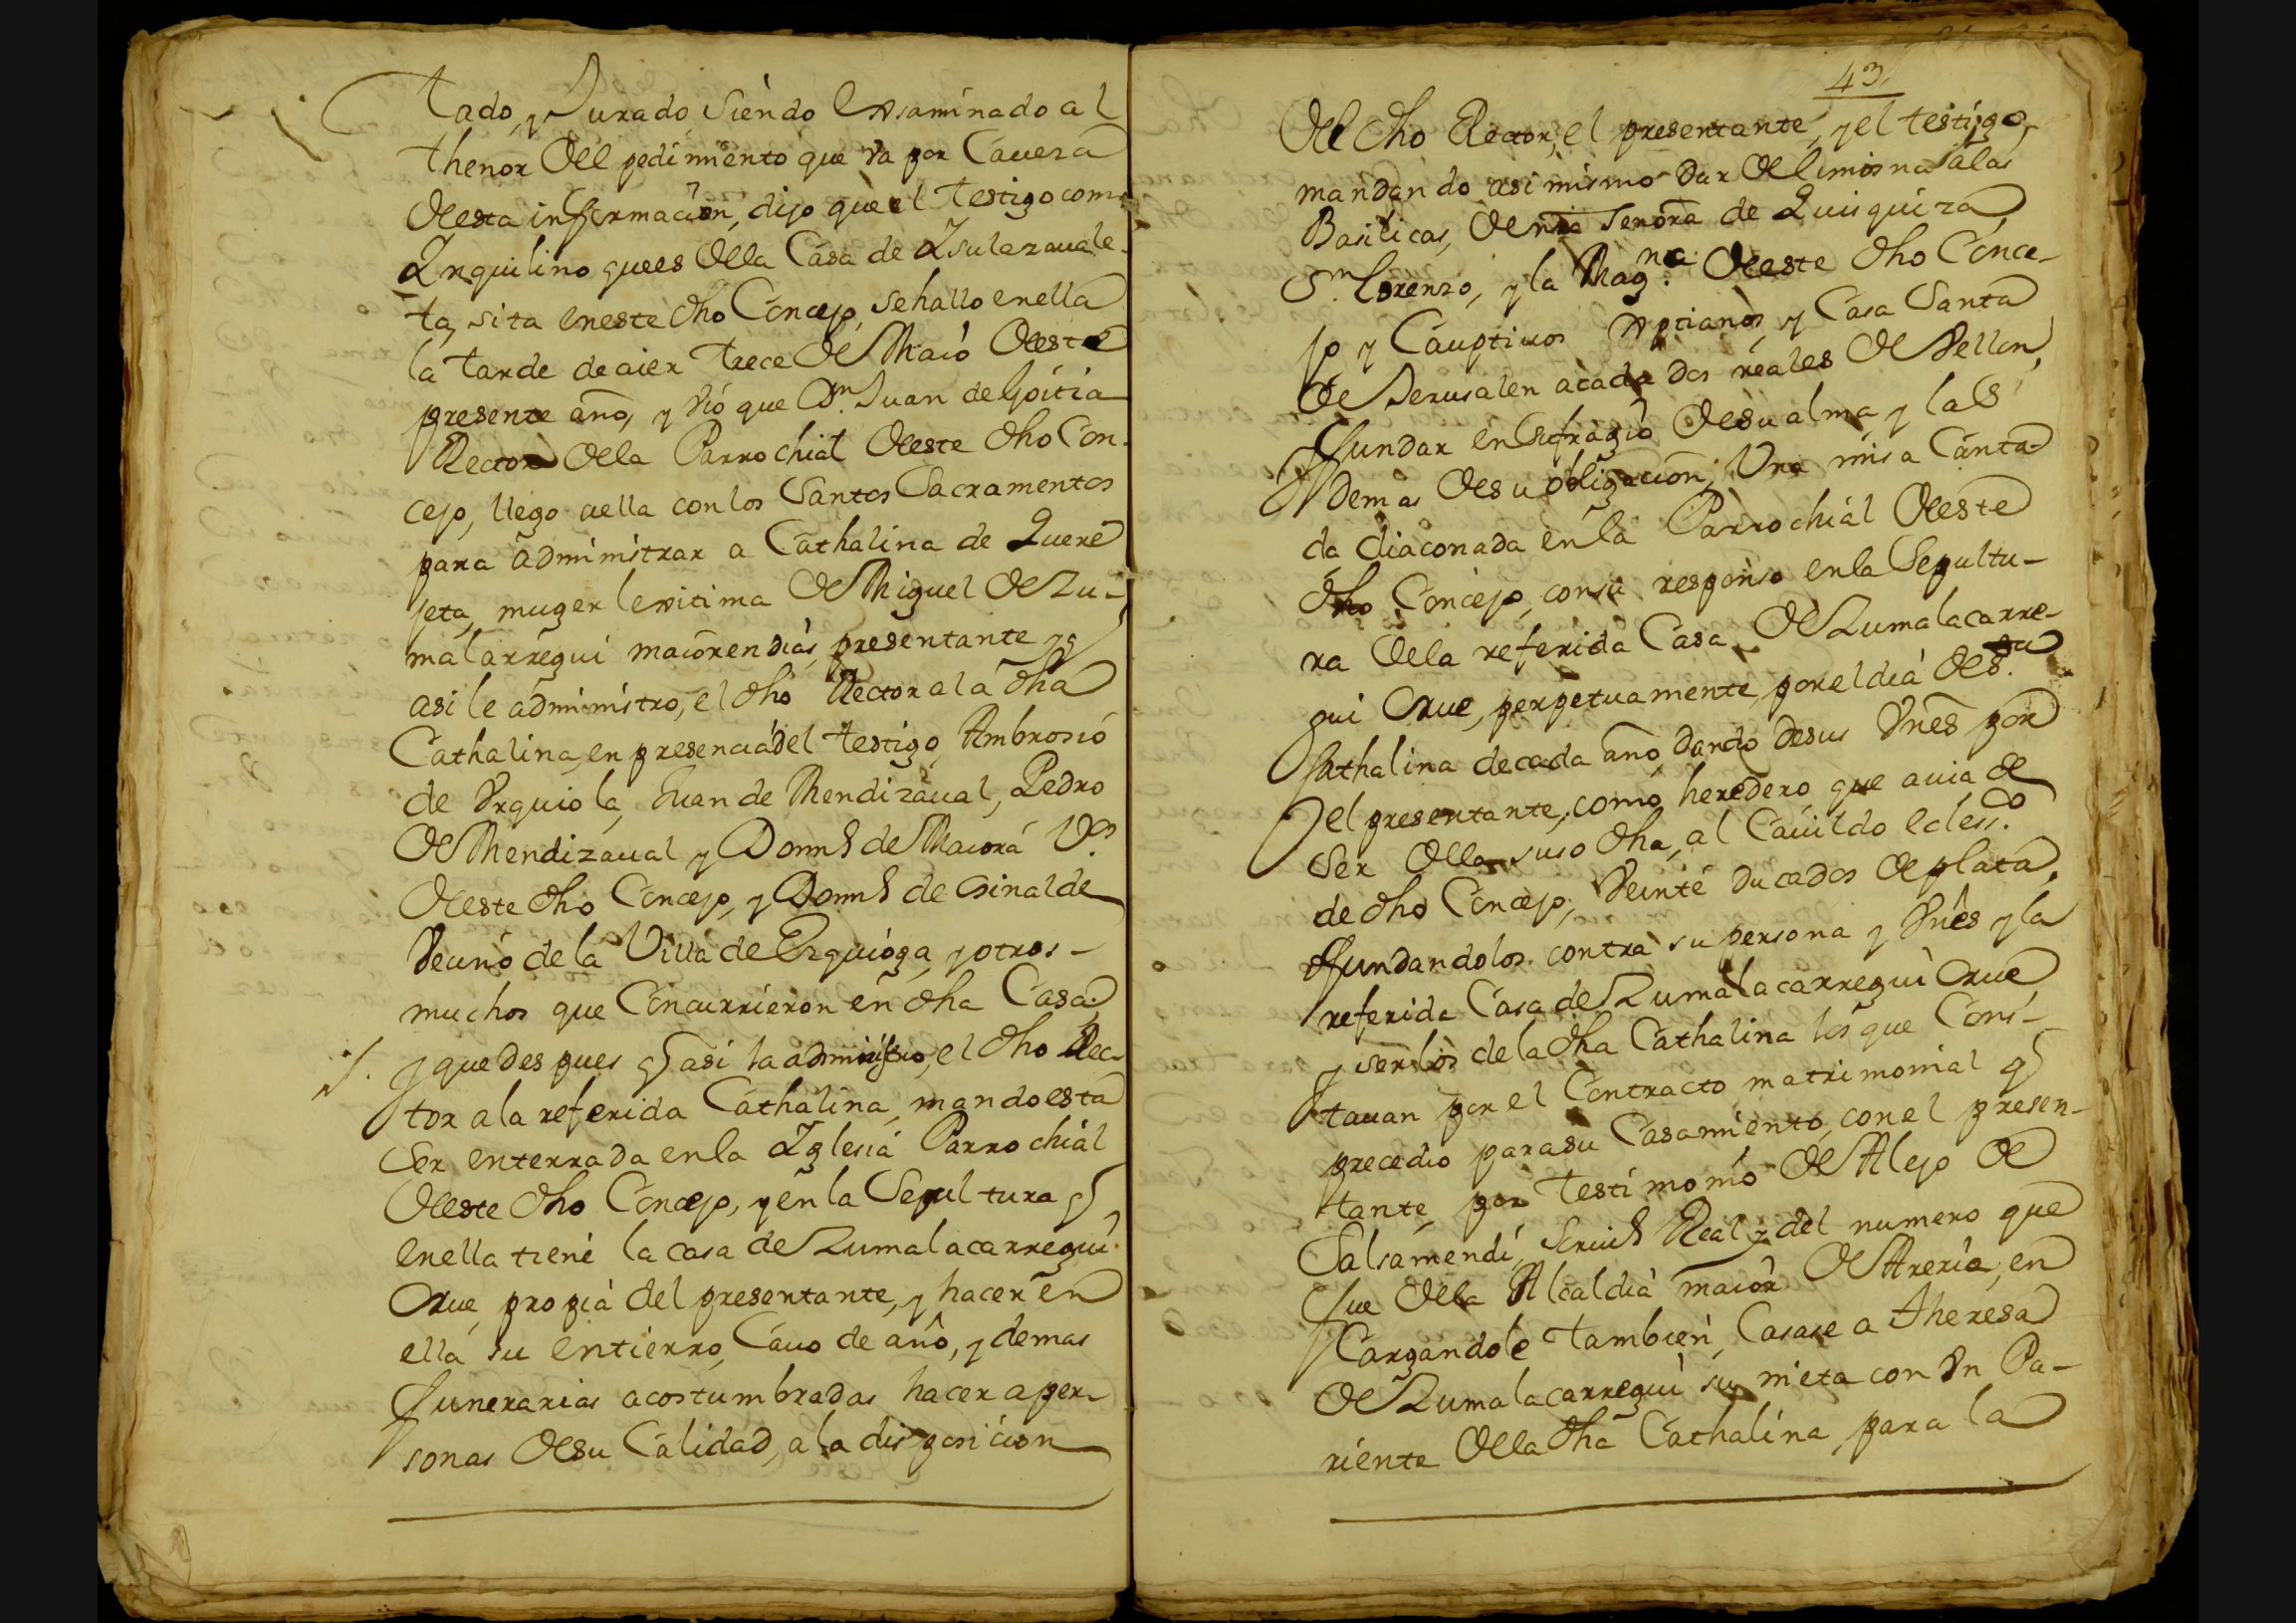 tado, y Jurado Siendo Exsaminado al
thenor del pedimiento que va por Cavera
desta informacion, dijo que el testigo como
Inquilino que es della Casa de Isulazavale-
ta, sita en este dho Concejo, se hallo en ella
la tarde de aier trece de Maio deeste
presente año, y vió que Dn. Juan de Goitia
Rector dela Parrochial deeste dho Con-
cejo, llego aella con los Santos Sacramentos
para administrar a Cathalina de Quere
jeta, muger lexitima de Miguel de Zu-
malarregui maior en dias, presentante, y
asi le administro, el dho Rector ala dha
Cathalina, en presencia del testigo, Ambrosio
de Vrquiola, Juan de Mendizaval, Pedro
de Mendizaval y Doms de Maiora Vos
deeste dho Concejo, y Doms de Osinalde
Vecino de la Villa de Ezquioga, y otros -
muchos que Concurrieron en dha Casa
y que despues q asi la administro, el dho Rec-
tor ala referida Cathalina, mando esta
Ser enterrada en la Iglesia Parrochial
deeste dho Concejo, y en la Sepultura q
en ella tiene la casa de Zumalacarregui
Orue, propia del presentante, y hacer en
ella su entierro, Cavo de año, y demas
funerarias acostumbradas hacer a per-
sonas desu Calidad, a la disposicion
43
del dho Rector, el presentante, y el testigo,
mandando asi mismo dar de limosna alas
Basilicas, de nra Señora de Quisquiza,
Sn. Lorenzo, y la Magna. deeste dho Conce-
jo y Cauptivos Xptianos, y Casa Santa
de Jerusalen acada dos reales de Vellon,
fundar en Sufragio desu alma, y las
demas desu obligacion, Una misa Canta-
da diaconada en la Parrochial deeste
dho Concejo, con su responso en la Sepultu-
ra della referida Casa de Zumalacarre-
gui Orue, perpetuamente, por el dia de Sta
Cathalina de cada año, dando de sus Vnes por
el presentante, como heredero que avia de
Ser della suso dha, al Cavildo ecless.do
de dho Concejo, Veinte ducados de plata,
fundandolos contra su persona y Vnes y la
referida Casa de Zumalacarregui Orue,
y ser los de la dha Cathalina los que Cons-
tavan por el Contracto matrimonial q
precedio para su Casamiento, con el presen-
tante, por testimonio de Alejo de
Salsamendi, Scrivs Real y del numero que
fue della Alcaldia maior de Areria, en
Cargandole tambien, Casase a Theresa
de Zumalacarregui su nieta con Vn Pa-
riente della dha Cathalina, para la